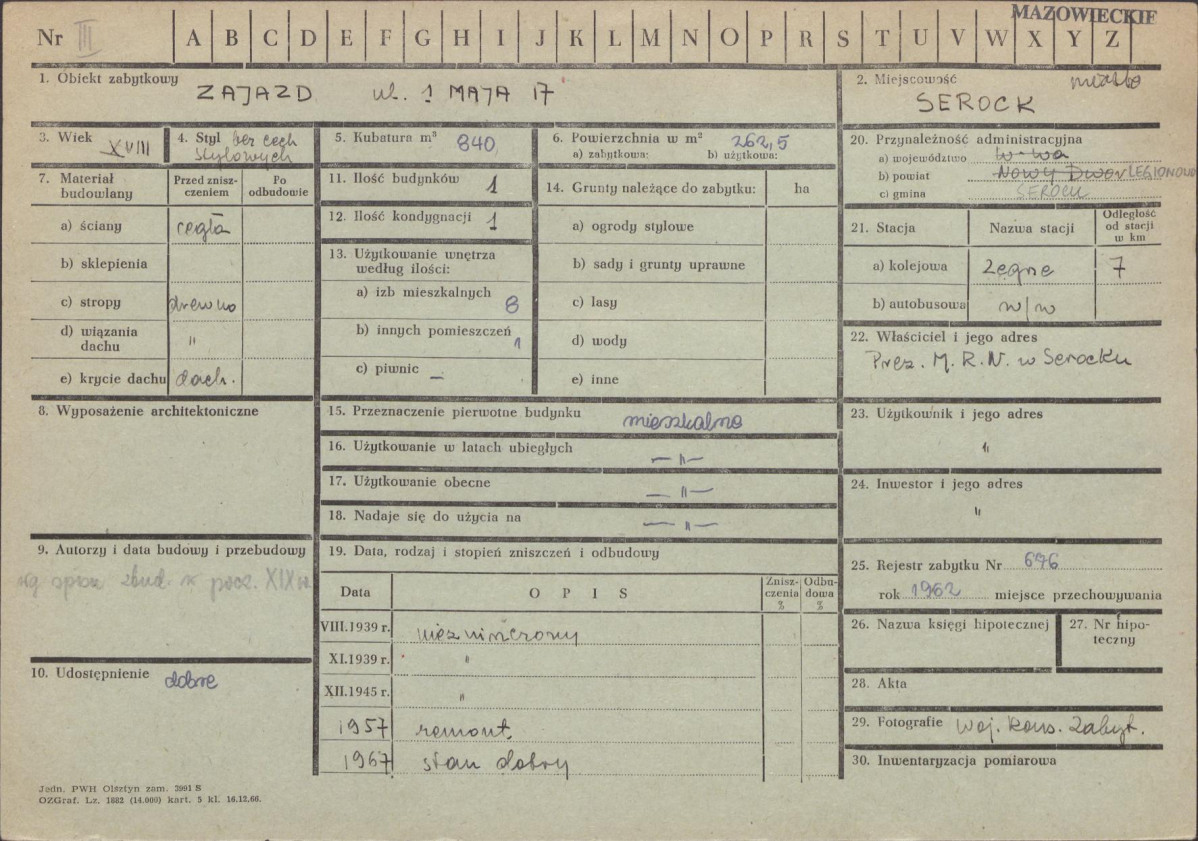 MAZOWIECKIE
Nr III A B C D E F G H I J K L M N O P R S T U V W X Y Z
1. Obiekt zabytkowy
ZAJAZD ul. 1 MAJA 17
2. Miejscowość miasto
SEROCK
3. Wiek XVIII
4. Styl bez cech
stylowych
5. Kubatura m³ 840
6. Powierzchnia w m² 262,5
a) zabytkowa: b) użytkowa:
20. Przynależność administracyjna
a) województwo W-wa
b) powiat Nowy Dwór LEGIONOWO
c) gmina SEROCK
7. Materiał
budowlany
Przed znisz-
czeniem
Po
odbudowie
a) ściany cegła
b) sklepienia
c) stropy drewno
d) wiązania
dachu "
e) krycie dachu dach.
11. Ilość budynków 1
12. Ilość kondygnacji 1
13. Użytkowanie wnętrza
według ilości:
a) izb mieszkalnych 8
b) innych pomieszczeń 1
c) piwnic —
14. Grunty należące do zabytku: ha
a) ogrody stylowe
b) sady i grunty uprawne
c) lasy
d) wody
e) inne
21. Stacja Nazwa stacji
Odległość
od stacji
w km
a) kolejowa Zegrze 7
b) autobusowa w/w
22. Właściciel i jego adres
Prez. M. R. N. w Serocku
8. Wyposażenie architektoniczne
15. Przeznaczenie pierwotne budynku mieszkalne
16. Użytkowanie w latach ubiegłych —"—
17. Użytkowanie obecne —"—
18. Nadaje się do użycia na —"—
23. Użytkownik i jego adres
"
24. Inwestor i jego adres
"
9. Autorzy i data budowy i przebudowy
wg spisu zbud. w pocz. XIX w.
19. Data, rodzaj i stopień zniszczeń i odbudowy
Data OPIS
Znisz-
czenia
%
Odbu-
dowa
%
VIII.1939 r. niezniszczony
XI.1939 r. "
XII.1945 r. "
1957 remont
1967 stan dobry
25. Rejestr zabytku Nr 676
rok 1962 miejsce przechowywania
26. Nazwa księgi hipotecznej
27. Nr hipo-
teczny
10. Udostępnienie dobre
28. Akta
29. Fotografie Woj. Kons. Zabyt.
30. Inwentaryzacja pomiarowa
Jedn. PWH Olsztyn zam. 3991 S
OZGraf. Lz. 1682 (14.000) kart. 5 kl. 16.12.66.